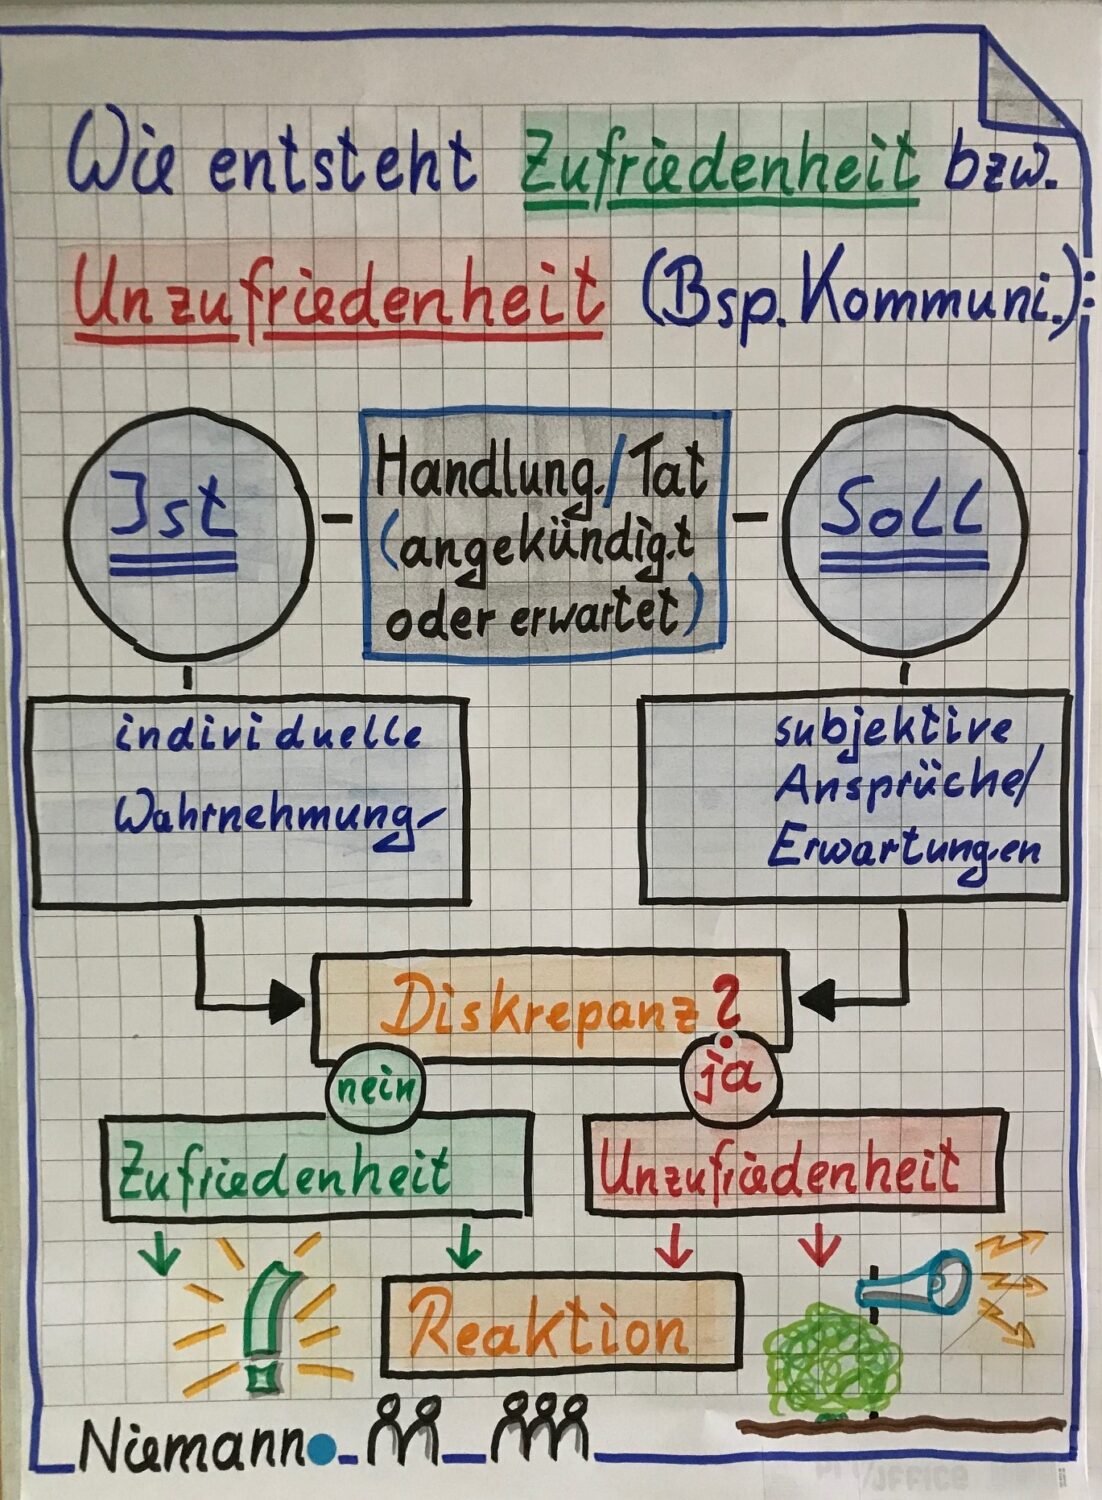 Wie entsteht Zufriedenheit bzw.
Unzufriedenheit (Bsp. Kommuni.):
Ist
Handlung/Tat
(angekündigt
oder erwartet)
Soll
individuelle
Wahrnehmung
subjektive
Ansprüche/
Erwartungen
Diskrepanz?
nein
ja
Zufriedenheit
Unzufriedenheit
Reaktion
Niemann